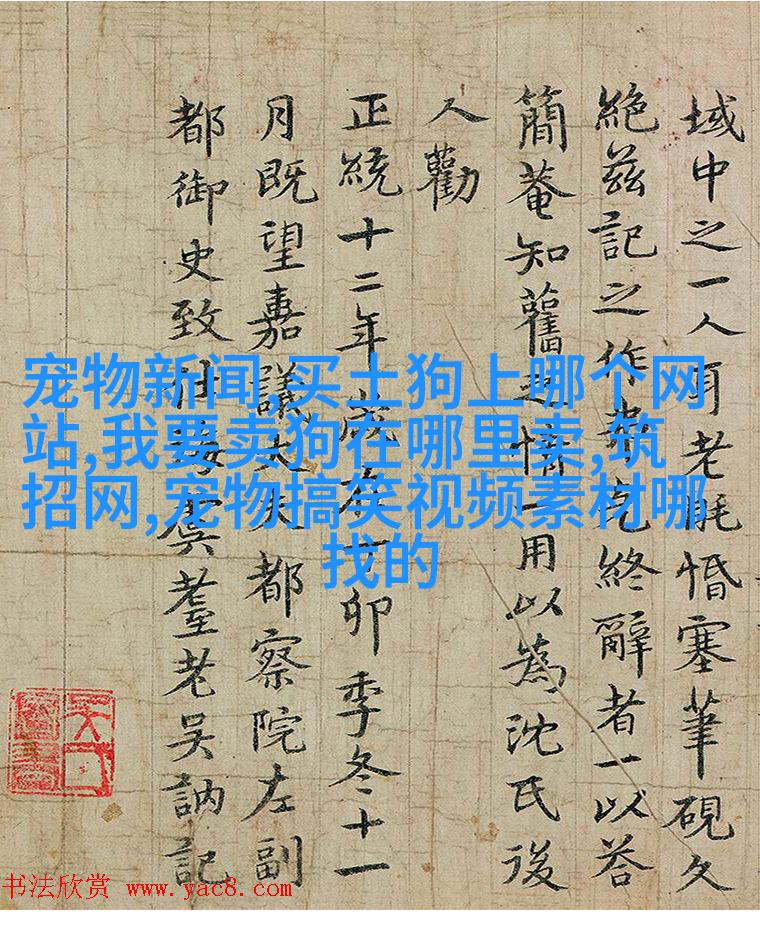 域中之一人耳老眊惛塞筆硯久
絶茲記之作終辭者一以荅
簡菴知舊之情一用以為沈氏後
人勸
正統十二年歲在丁卯季冬十一
月既望嘉議大夫都察院左副
都御史致仕海虞耋老吳訥記
宠物新闻,买土狗上哪个网
站,我要卖狗在哪里卖,筑
招网,宠物搞笑视频素材哪
找的
书法欣赏 www.yac8.com